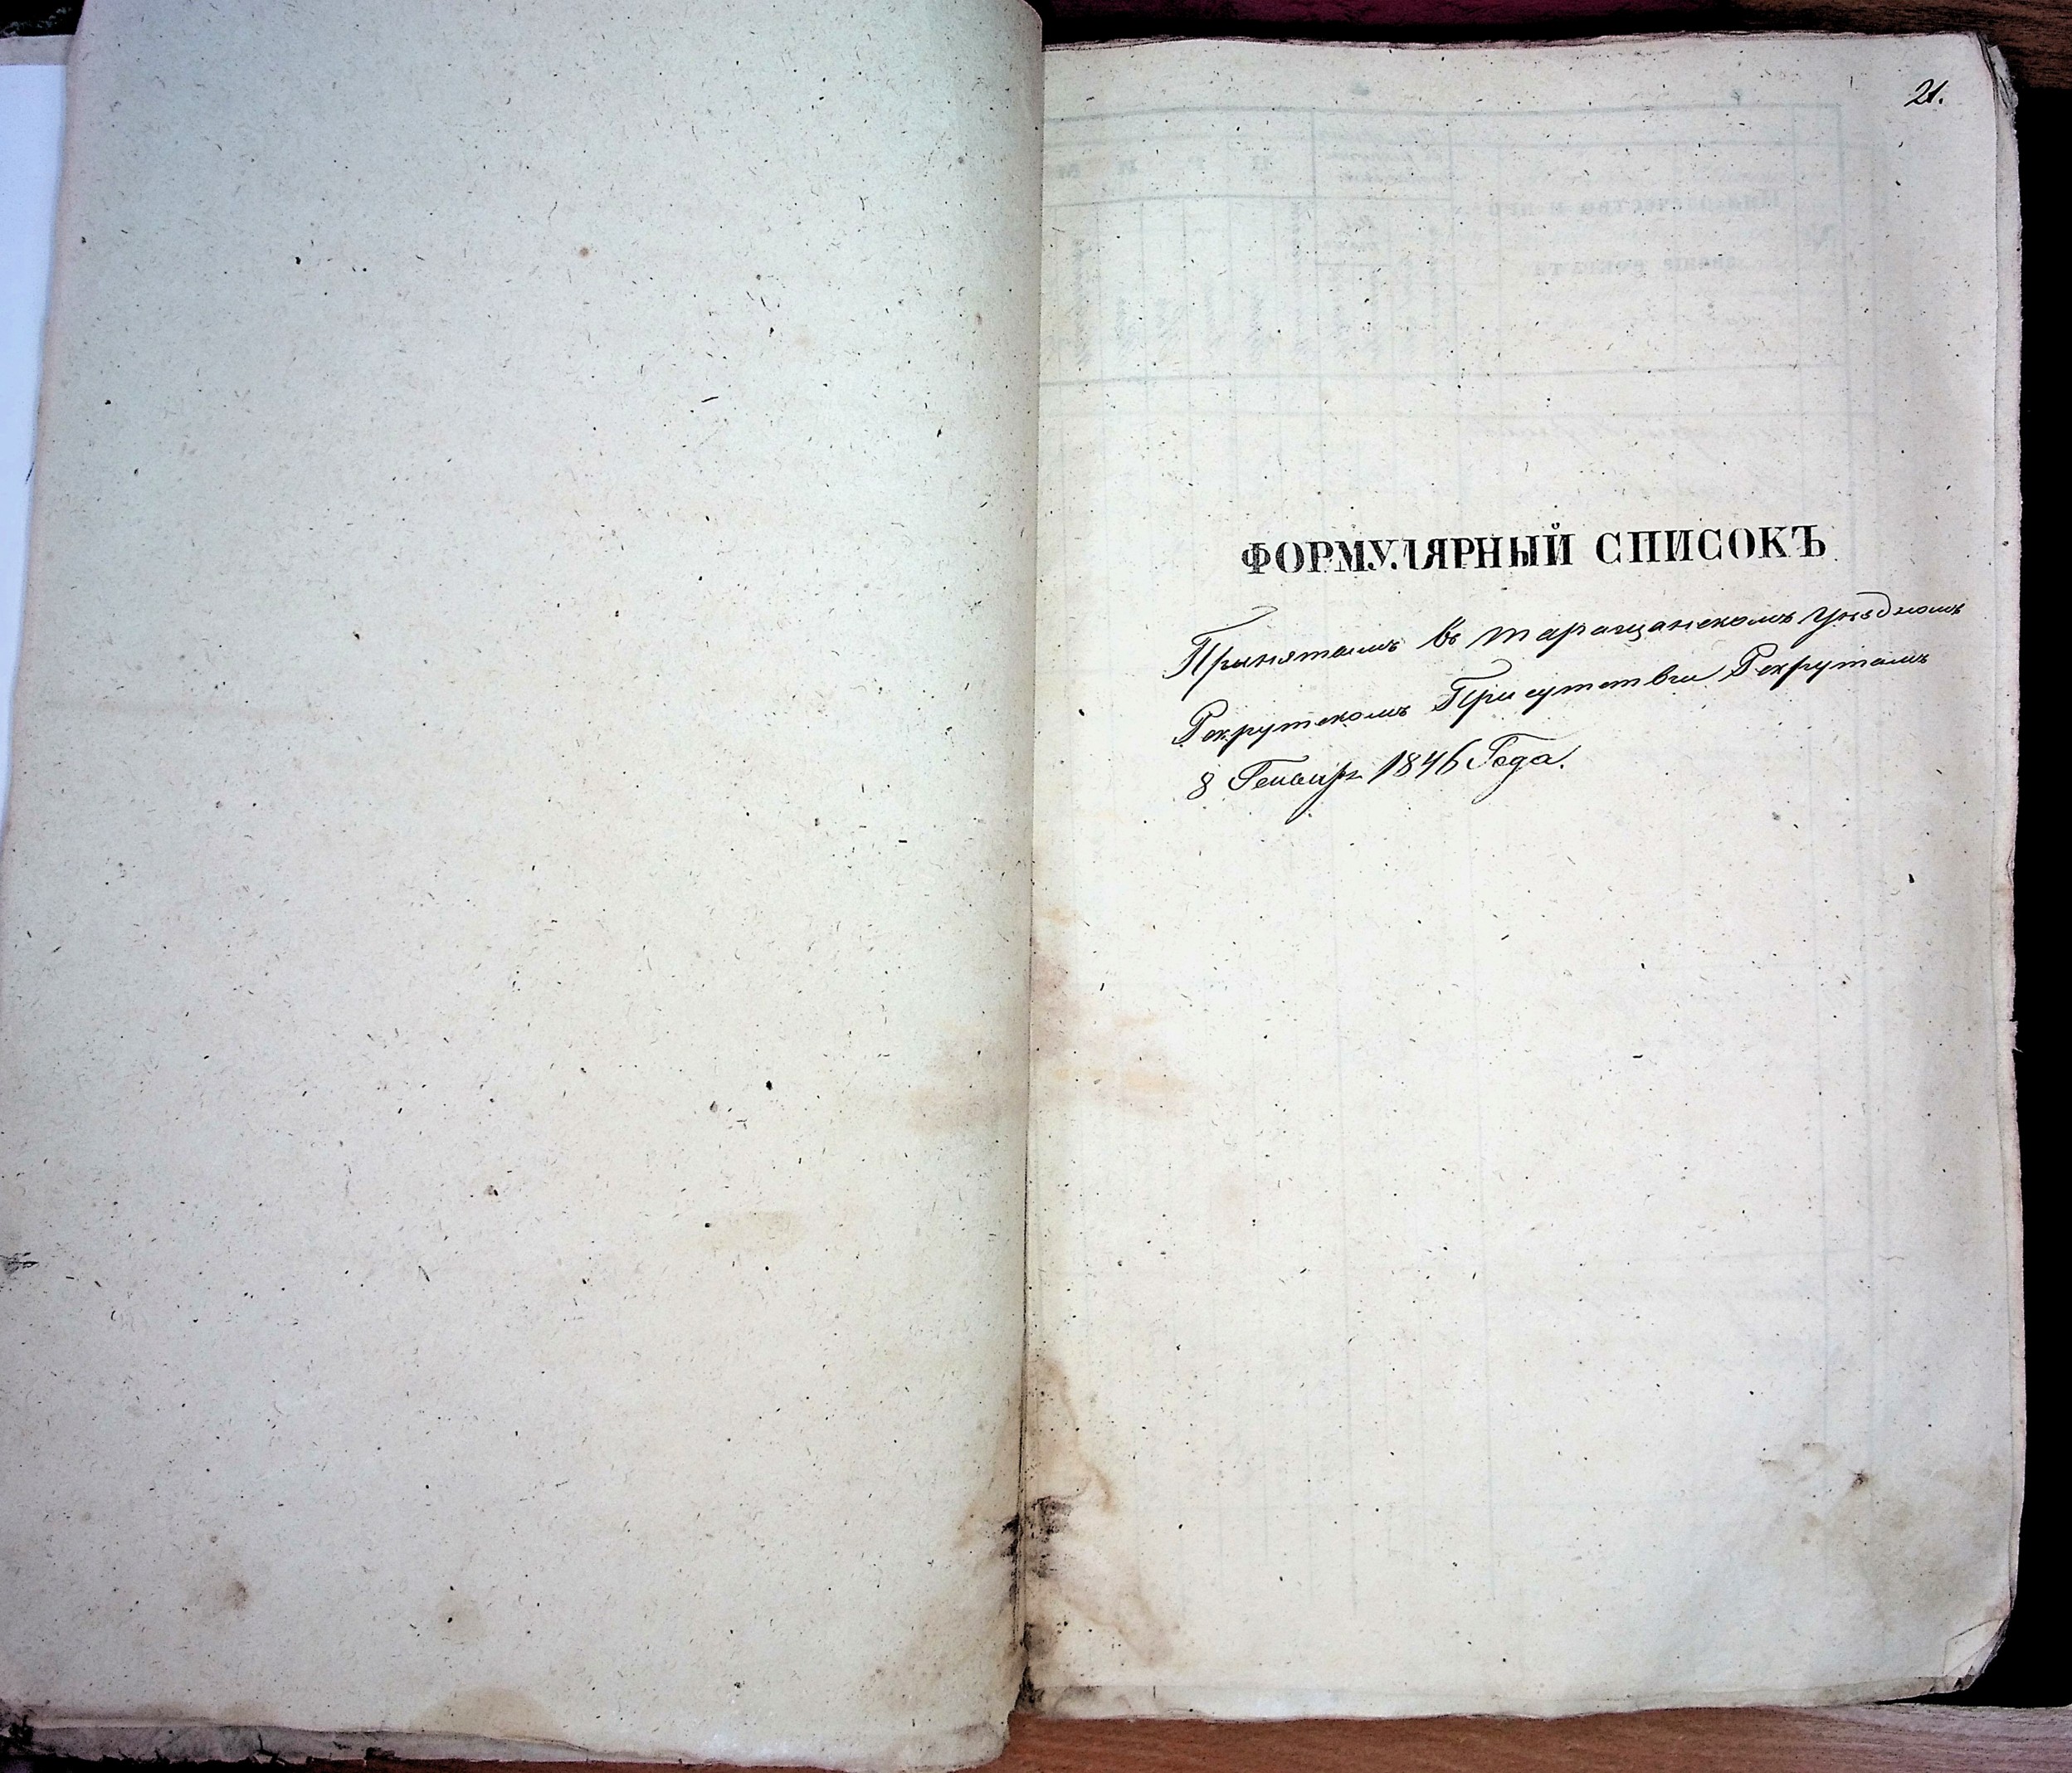 21.
ФОРМУЛЯРНЫЙ СПИСОКЪ
Принятымъ въ Таращанскомъ Уѣздномъ
Рекрутскомъ Присутствіи Рекрутамъ
8 Генваря 1846 Года.